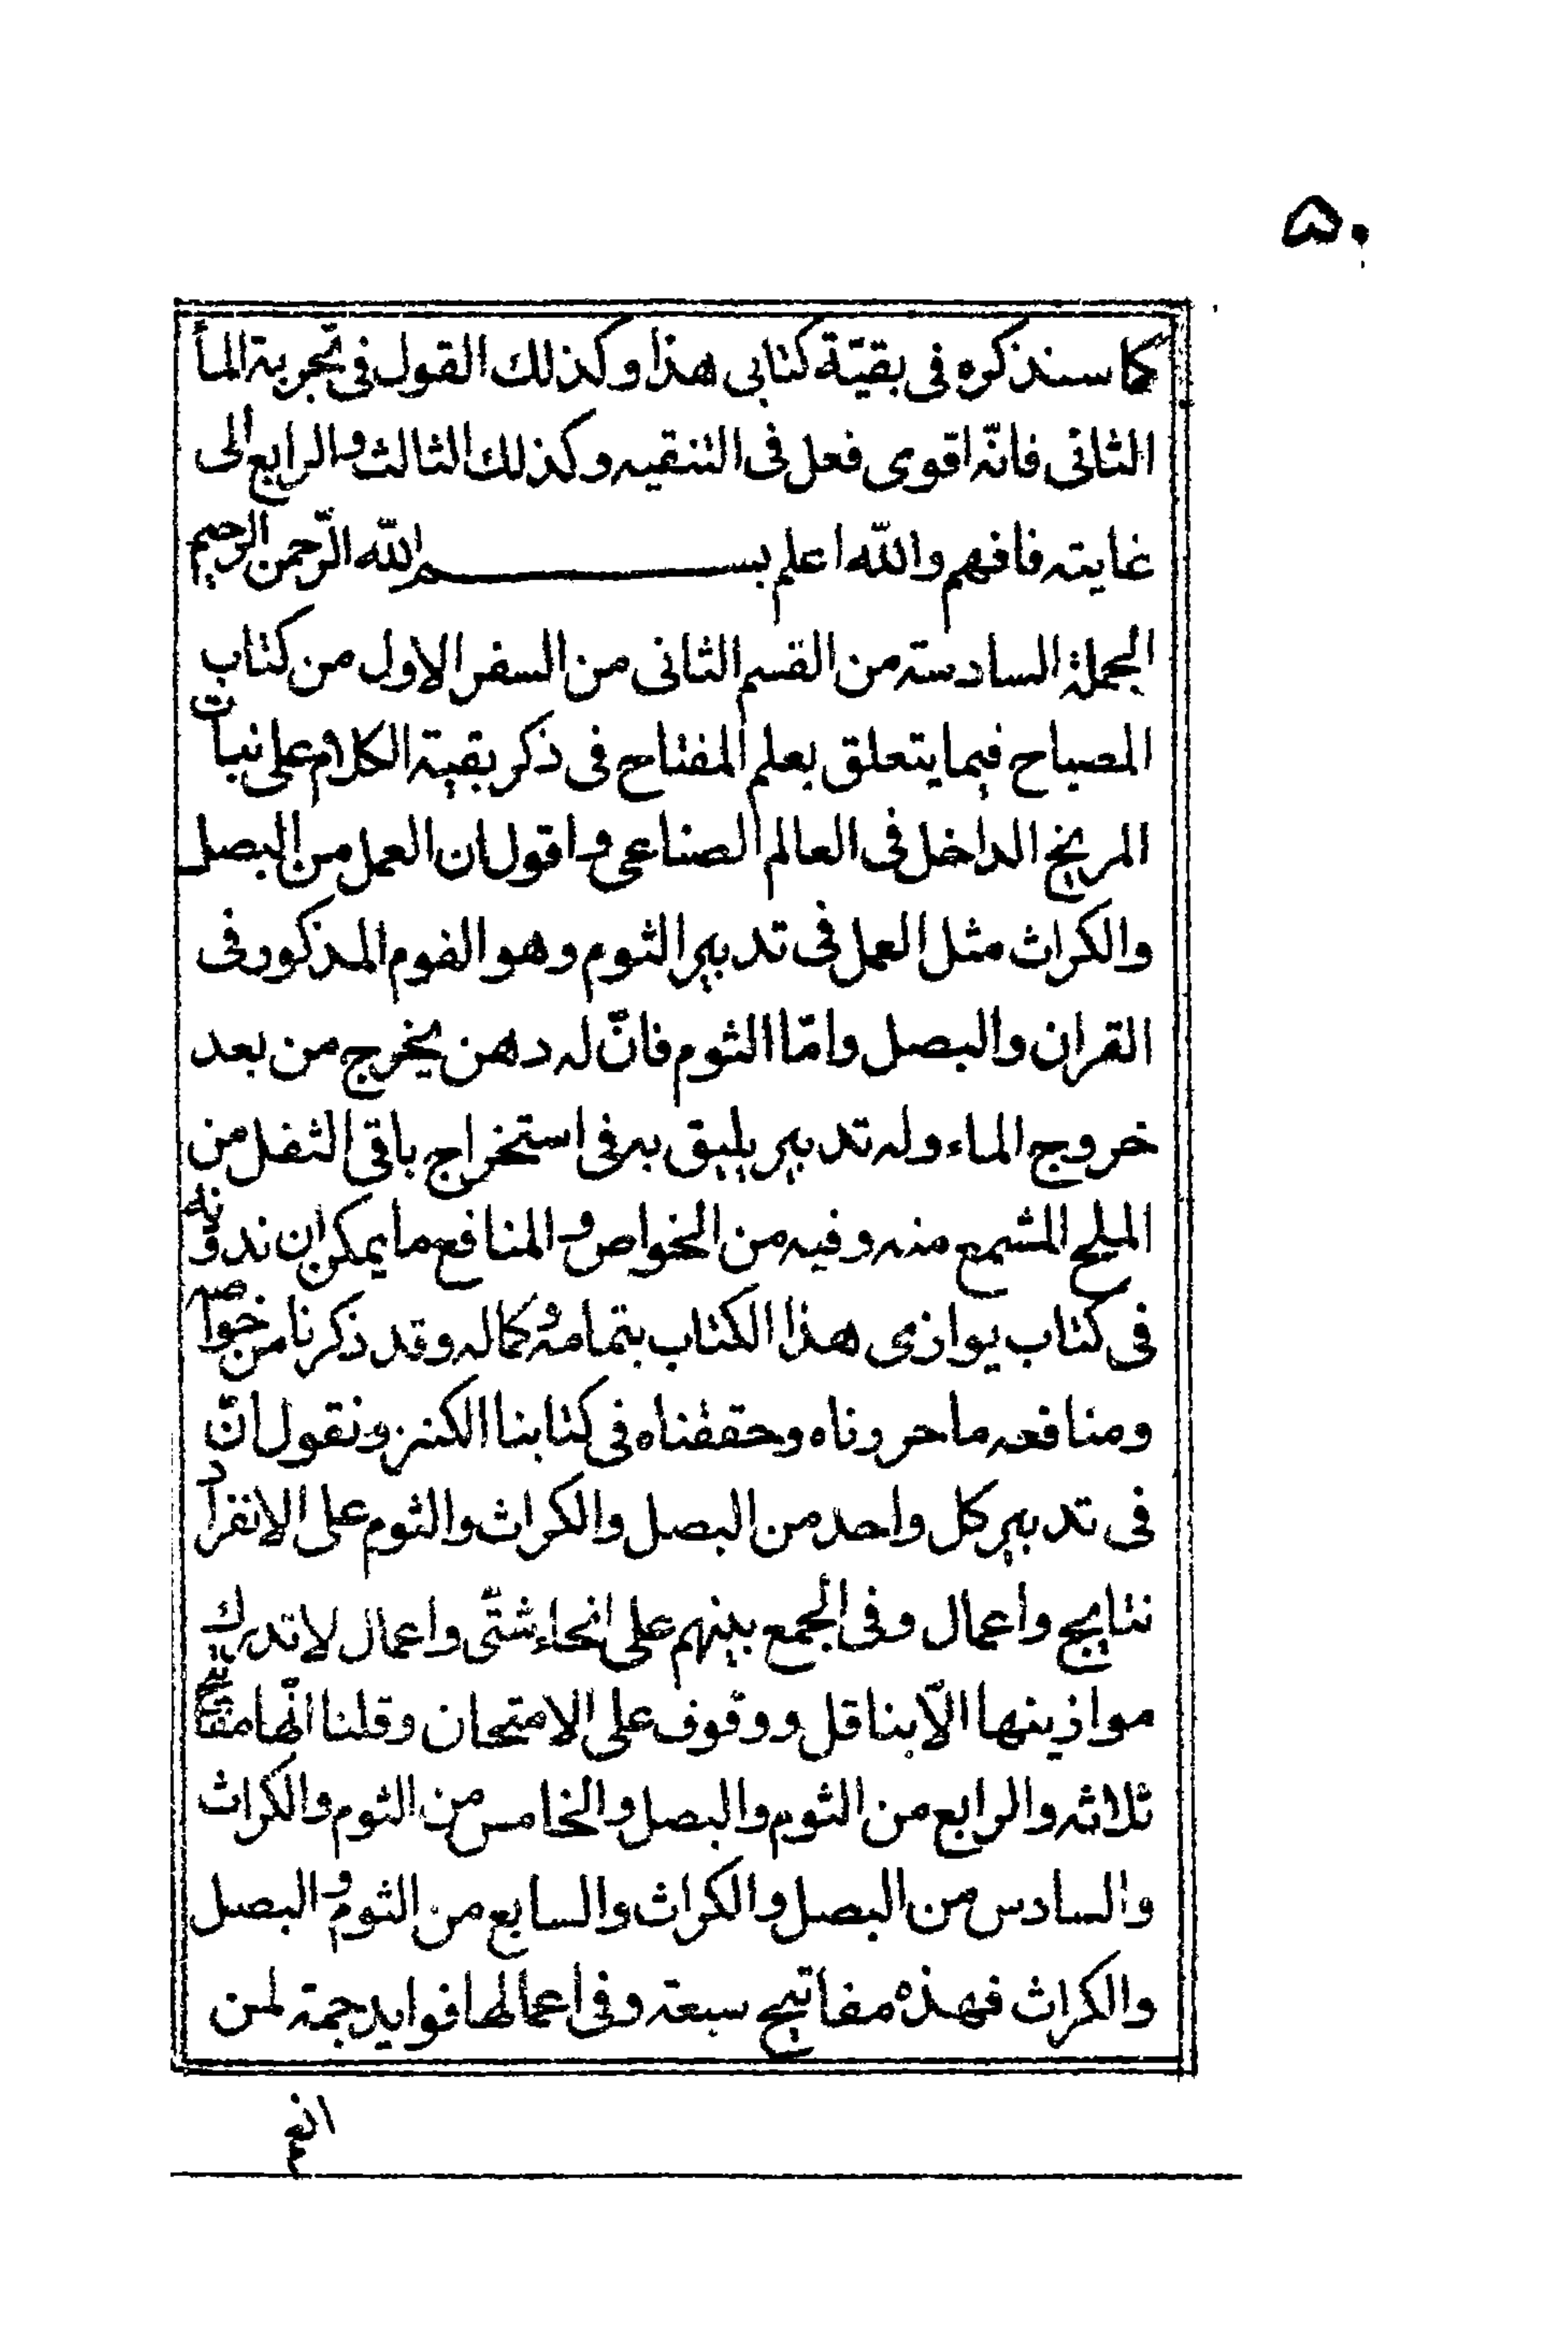 ۵۰
كما سنذكره فى بقيّة كتابى هذا وكذلك القول فى تجربة المأ
الثانى فانّه اقوى فعل فى التنقيه وكذلك الثالث والرابع الى
غايته فافهم والله اعلم بسم الله الرّحمن الرحيم
الجملة السادسته من القسم الثانى من السفر الاول من كتاب
المصباح فيما يتعلق بعلم المفتاح فى ذكر بقية الكلام على نبات
المريخ الداخل فى العالم الصناعى واقول ان العمل من البصل
والكراث مثل العمل فى تدبير الثوم وهو الفوم المذكور فى
القران والبصل وامّا الثوم فانّ له دهن يخرج من بعد
خروج الماء وله تدبير يليق به فى استخراج باقى الثفل من
الملح المشمع منه وفيه من الخواص والمنافع ما يمكن ان ندونه
فى كتاب يوازى هذا الكتاب بتمامه وكماله وقد ذكرنا من خواصه
ومنافعه ما حررناه وحققناه فى كتابنا الكنز ونقول انّ
فى تدبير كل واحد من البصل والكراث والثوم على الانفراد
نتايج واعمال وفى الجمع بينهم على انحاء شتّى واعمال لا تدرك
موازينها الّا بناقل ووقوف على الامتحان وقلنا انّها مفاتيح
ثلاثه والرابع من الثوم والبصل والخامس من الثوم والكراث
والسادس من البصل والكراث والسابع من الثوم والبصل
والكراث فهذه مفاتيح سبعة وفى اعمالها فوايد جمة لمن
انعم